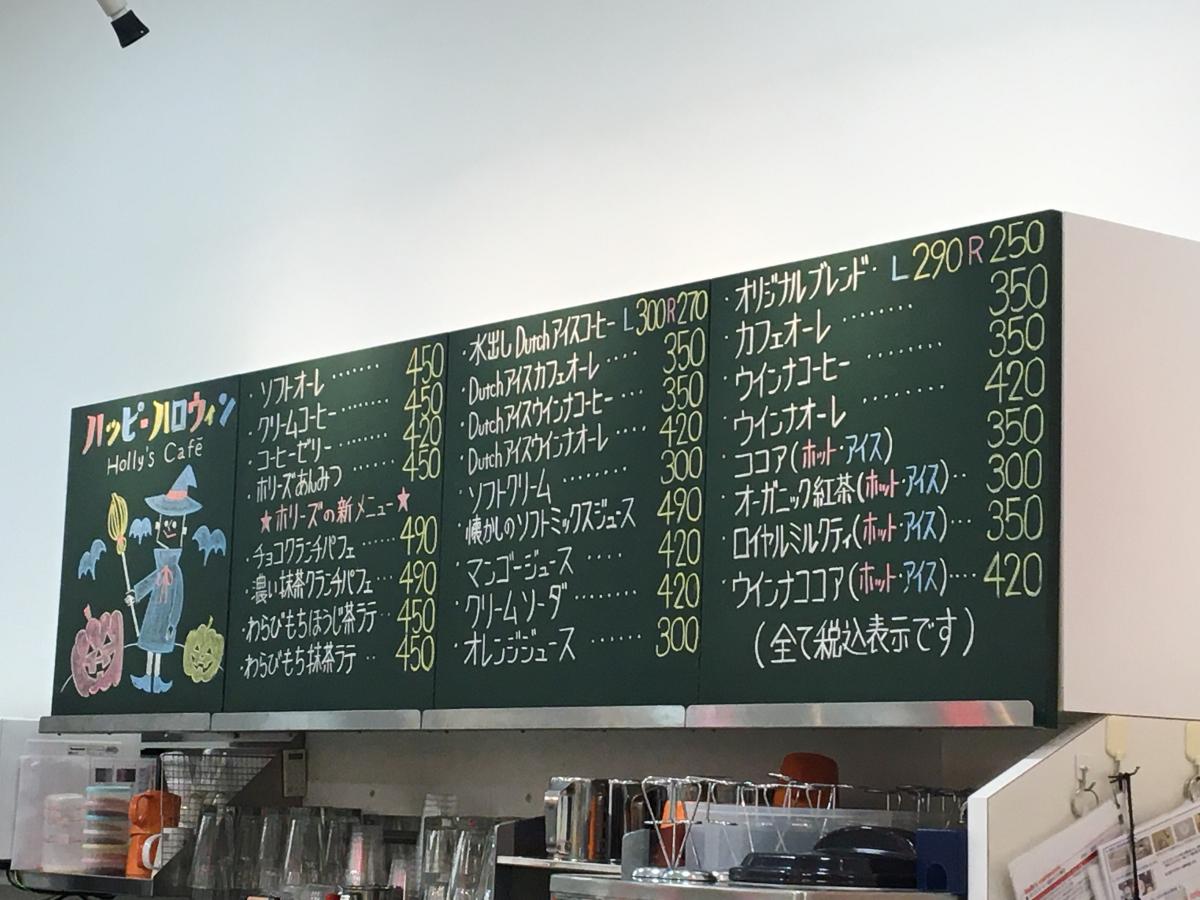 ハッピーハロウィン
Holly's Café
ソフトオーレ ········ 450
・クリームコーヒー ········ 450
・コーヒーゼリー ········ 420
・ホリーズあんみつ ······ 450
★ホリーズの新メニュー★
・チョコクランチパフェ ······ 490
・濃い抹茶クランチパフェ ··· 490
・わらびもちほうじ茶ラテ ·· 450
・わらびもち抹茶ラテ ·· 450
・水出しDutchアイスコーヒー L300R270
・Dutchアイスカフェオーレ ···· 350
・Dutchアイスウインナコーヒー ···· 350
・Dutchアイスウインナオーレ ···· 420
・ソフトクリーム ······ 300
・懐かしのソフトミックスジュース 490
・マンゴージュース ···· 420
・クリームソーダ ······ 420
・オレンジジュース ······ 300
・オリジナルブレンド・ L290R250
・カフェオーレ ········ 350
・ウインナコーヒー ········ 350
・ウインナオーレ ······· 420
・ココア(ホット・アイス) 350
・オーガニック紅茶(ホット・アイス)·· 300
・ロイヤルミルクティ(ホット・アイス)··· 350
・ウインナココア(ホット・アイス)···· 420
(全て税込表示です)